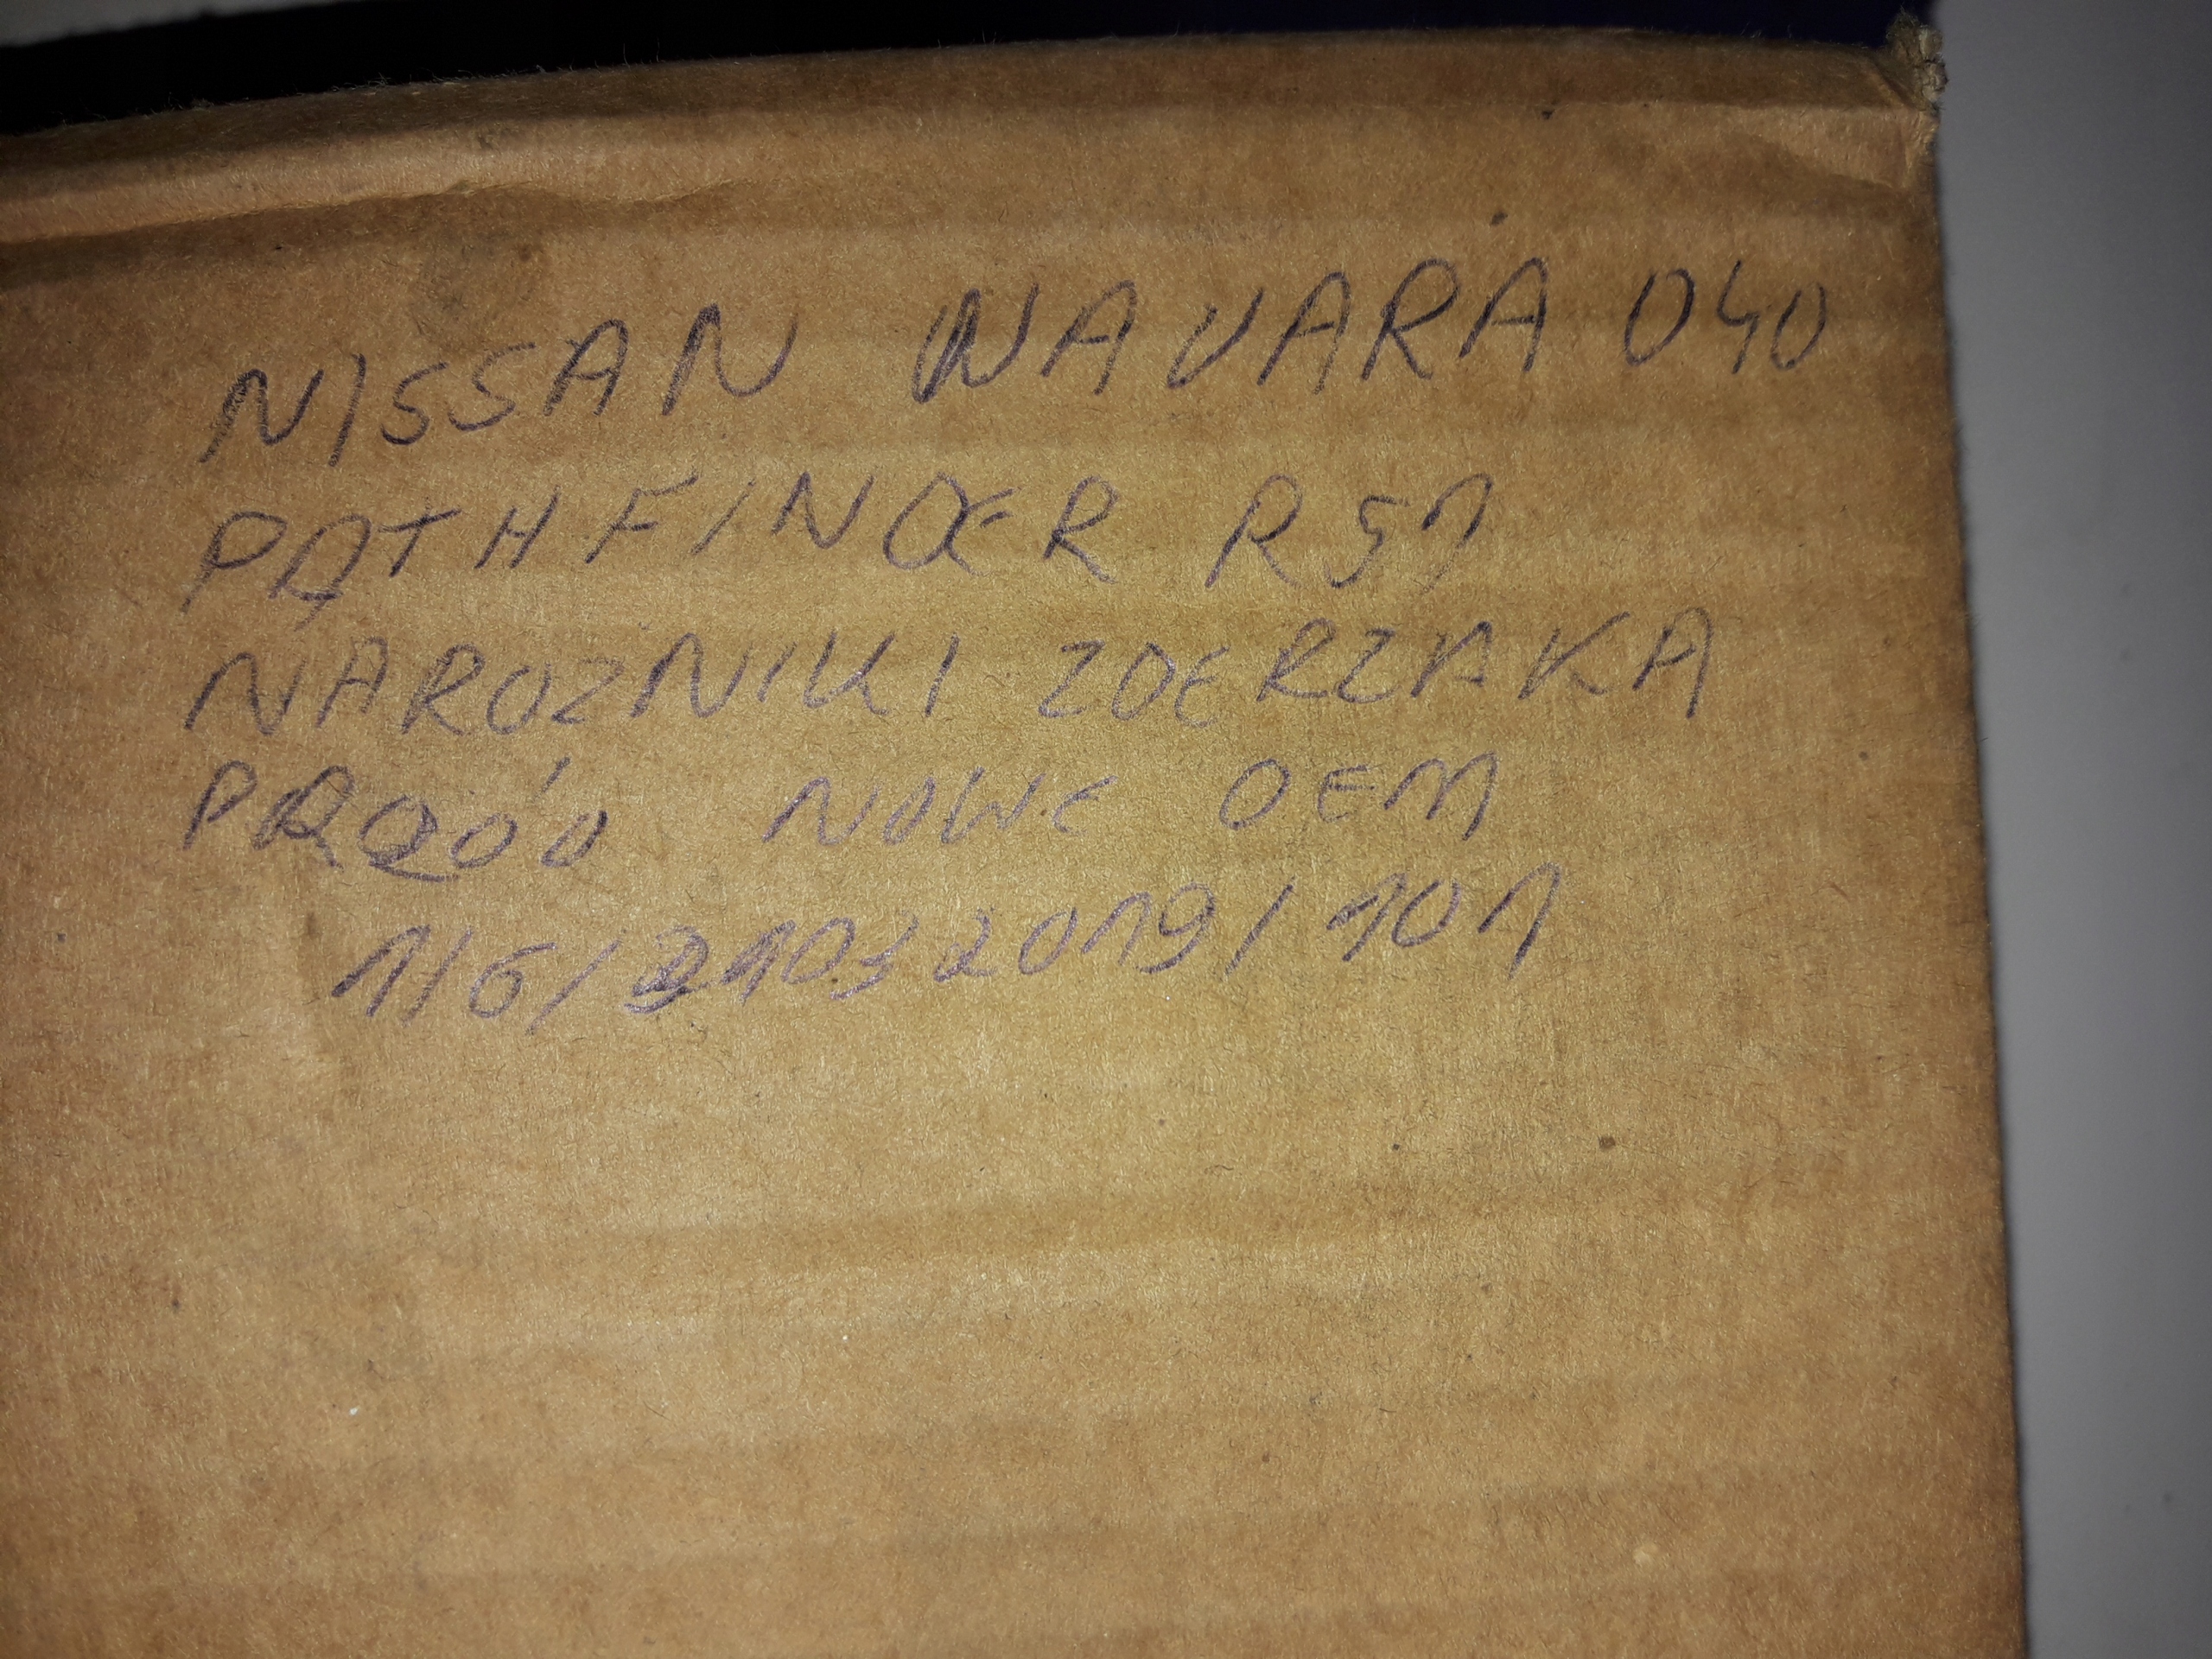 NISSAN NAVARA D40
PATHFINDER R51
NAROZNIKI ZDERZAKA
PRZÓD NOWE OEM
1/G/21032019/101